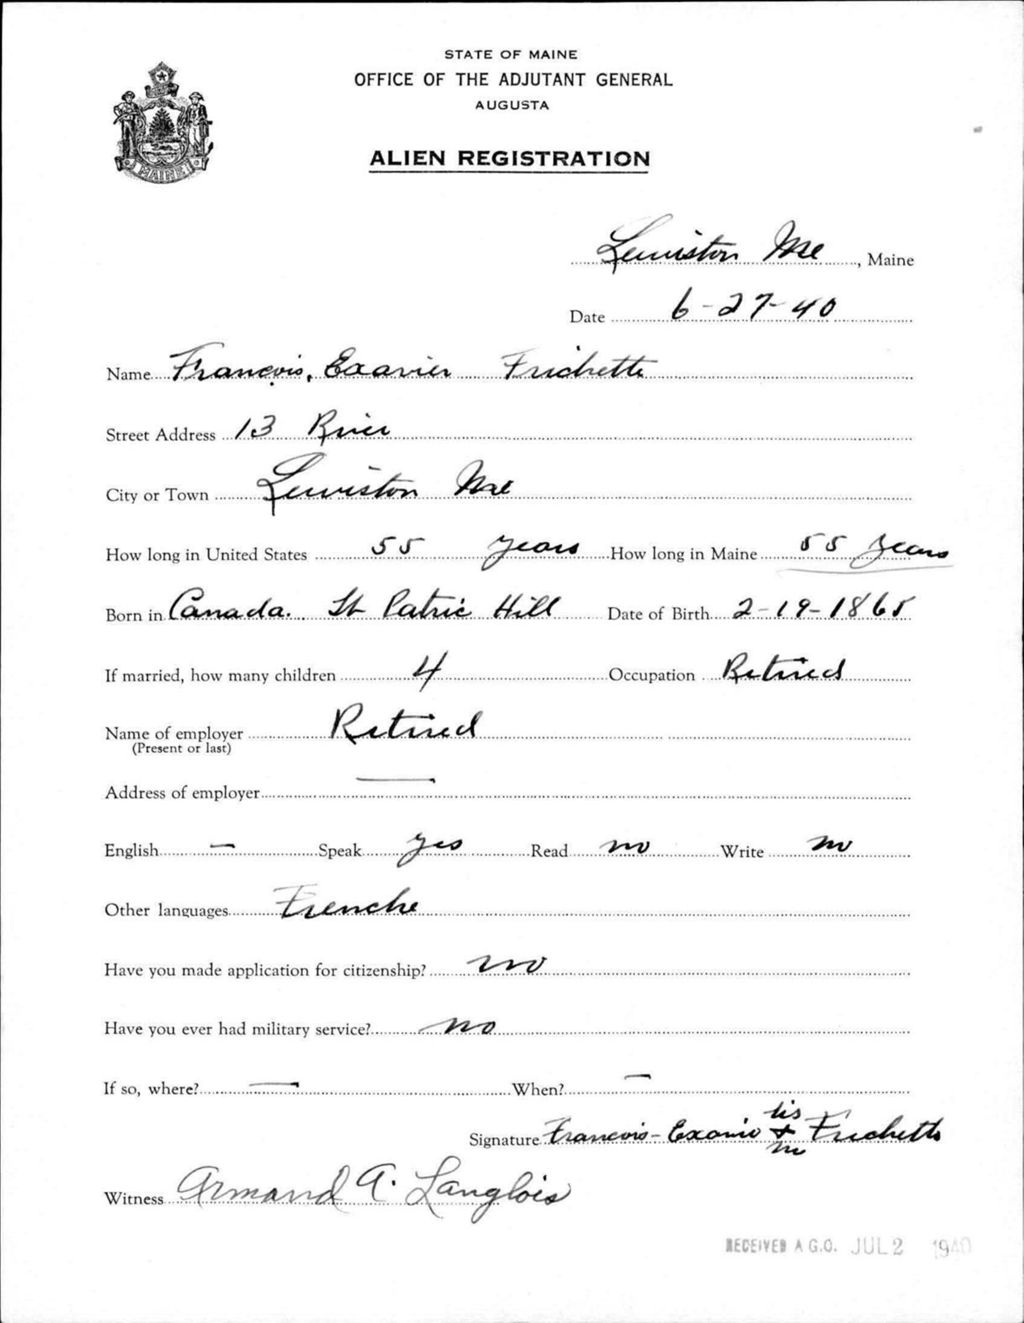 STATE OF MAINE
OFFICE OF THE ADJUTANT GENERAL
AUGUSTA
ALIEN REGISTRATION
MAINE
Lewiston Me, Maine
Date 6-27-40
Name Francois, Exavier Frichette
Street Address 13 River
City or Town Lewiston Me
How long in United States 55 years How long in Maine 55 years
Born in Canada. St Patric Hill Date of Birth 2-19-1865
If married, how many children 4 Occupation Retired
Name of employer Retired
(Present or last)
Address of employer —
English — Speak yes Read no Write no
Other languages Frenche
Have you made application for citizenship? no
Have you ever had military service? no
If so, where? — When? —
Signature Francois-Exavie his + m Frichette
Witness Armand A. Langlois
RECEIVED A.G.O. JUL 2 1940